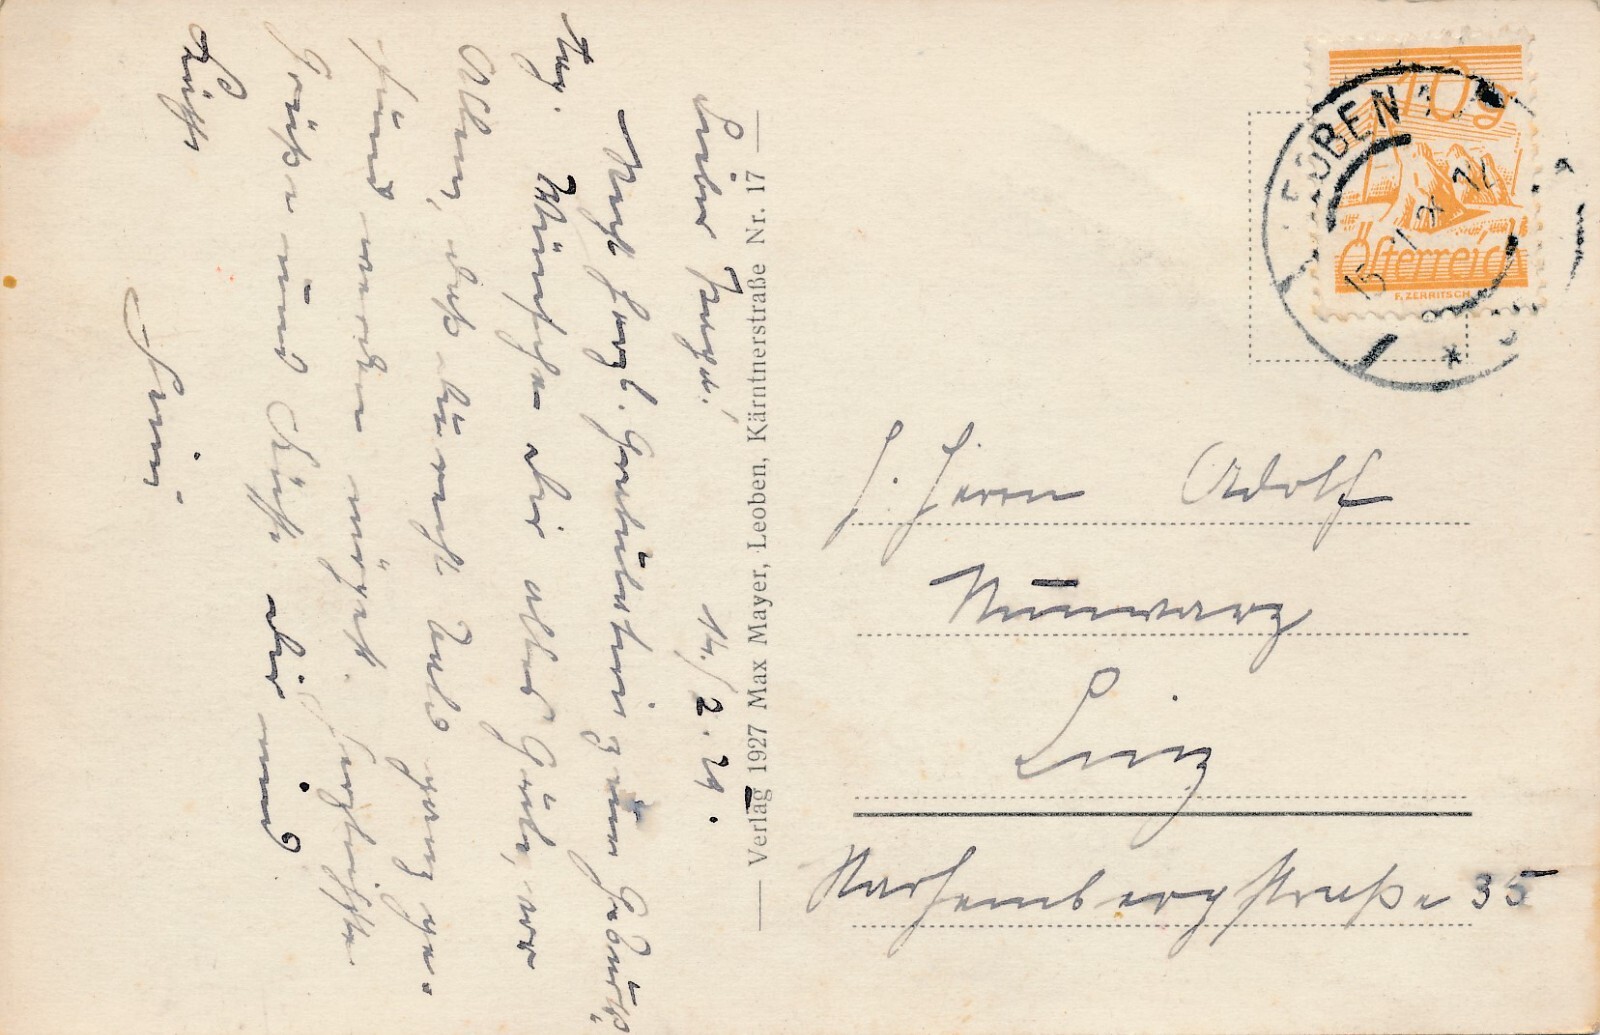 Lieber 14./2.29.
Recht herzl. Gratulation zum Geburts-
tag. Wünsche dir alles Gute, vor
Allem, daß du recht bald ganz ge-
sund werden mögest. Herzlichste
Grüße und Küsse dir und
— Verlag 1927 Max Mayer, Leoben, Kärntnerstraße Nr. 17 —
10g
Österreich
F. ZERRITSCH
LEOBEN 1
Herrn Adolf
Linz
Starhembergstraße 35